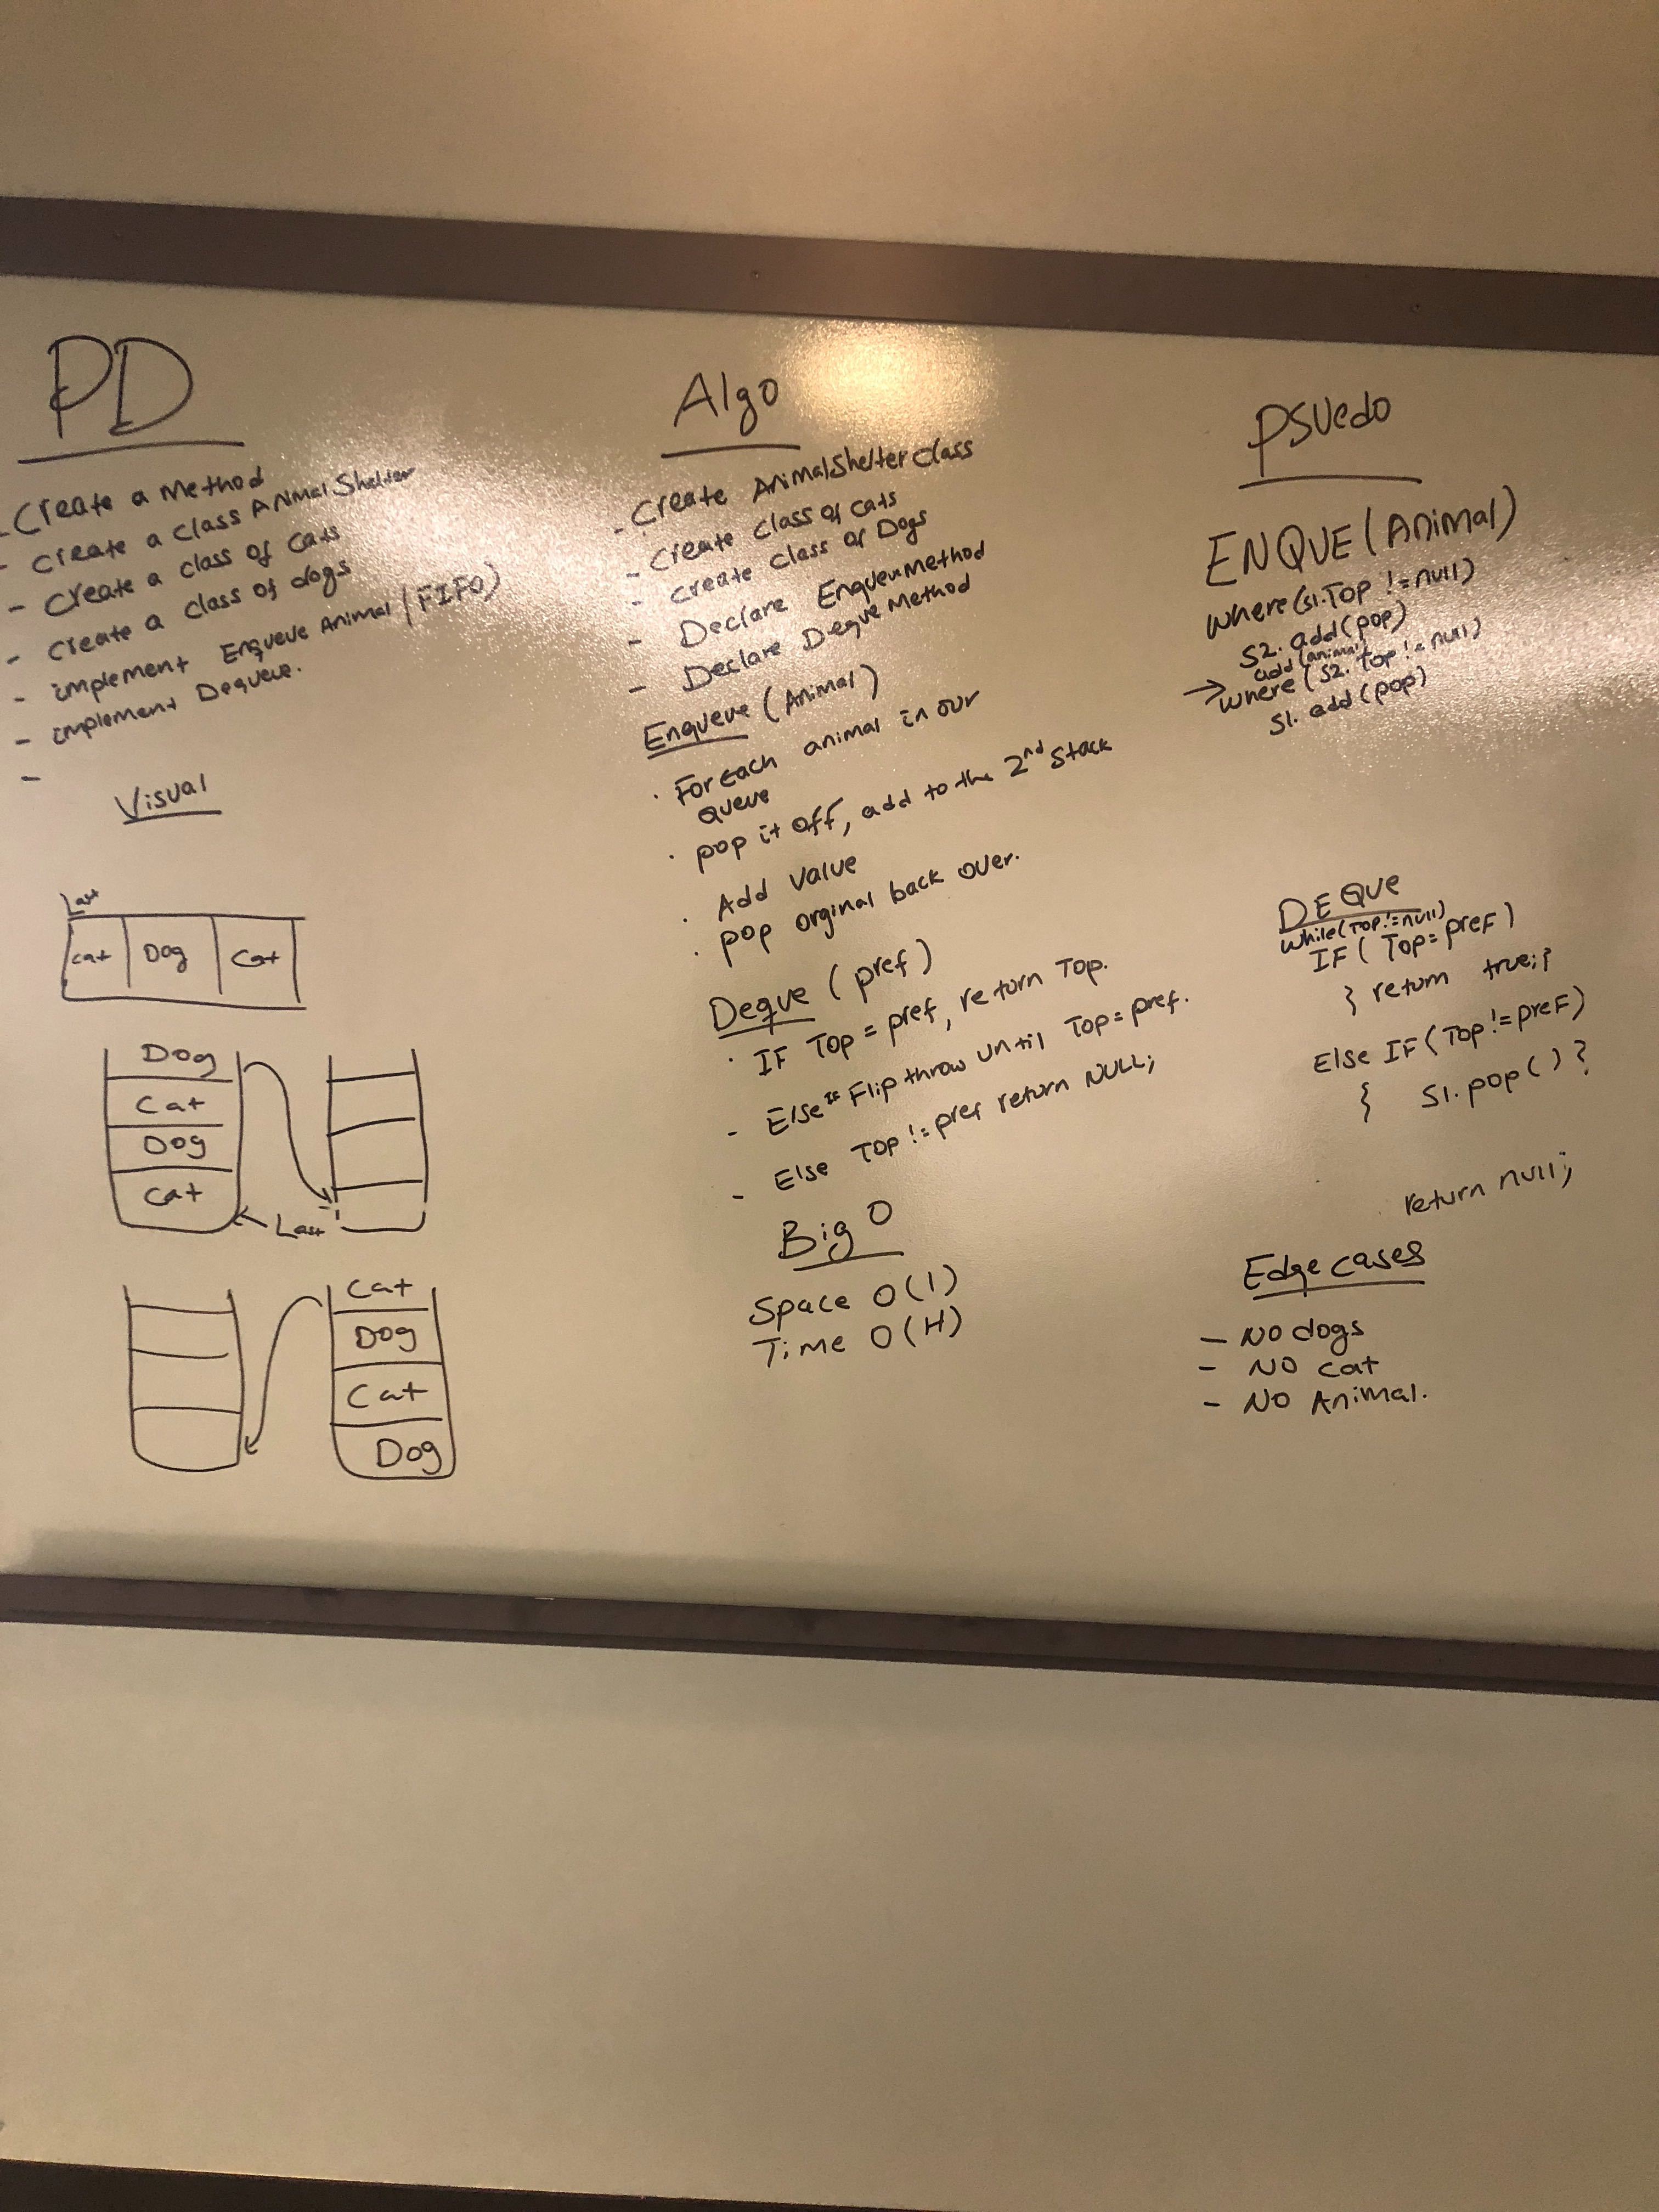 PD
- Create a Method
- create a class AnimalShelter
- Create a class of cats
- create a class of dogs
- implement Enqueue Animal (FIFO)
- implement Dequeue.
-
Visual
Last
Cat Dog Cat
Dog
Cat
Dog
Cat
Last
Cat
Dog
Cat
Dog
Algo
- Create AnimalShelter class
- Create class of cats
- create class of Dogs
- Declare Enqueu Method
- Declare Deque Method
Enqueue (Animal)
· For each animal in our
queue
· pop it off, add to the 2nd stack
· Add value
· pop orginal back over.
Deque (pref)
· IF Top = pref, return Top.
- Else IF Flip throw until Top = pref.
- Else Top != pref return NULL;
Big O
Space O(1)
Time O(H)
PSUedo
ENQUE (Animal)
where (S1.Top != null)
S2. add(pop)
add (animal)
→ where (S2. Top != null)
S1. add (pop)
DEQue
while(Top != null)
IF ( Top = pref )
} return true; }
Else IF (Top != pref)
{ S1. pop() }
return null;
Edge cases
- NO dogs
- NO cat
- NO Animal.